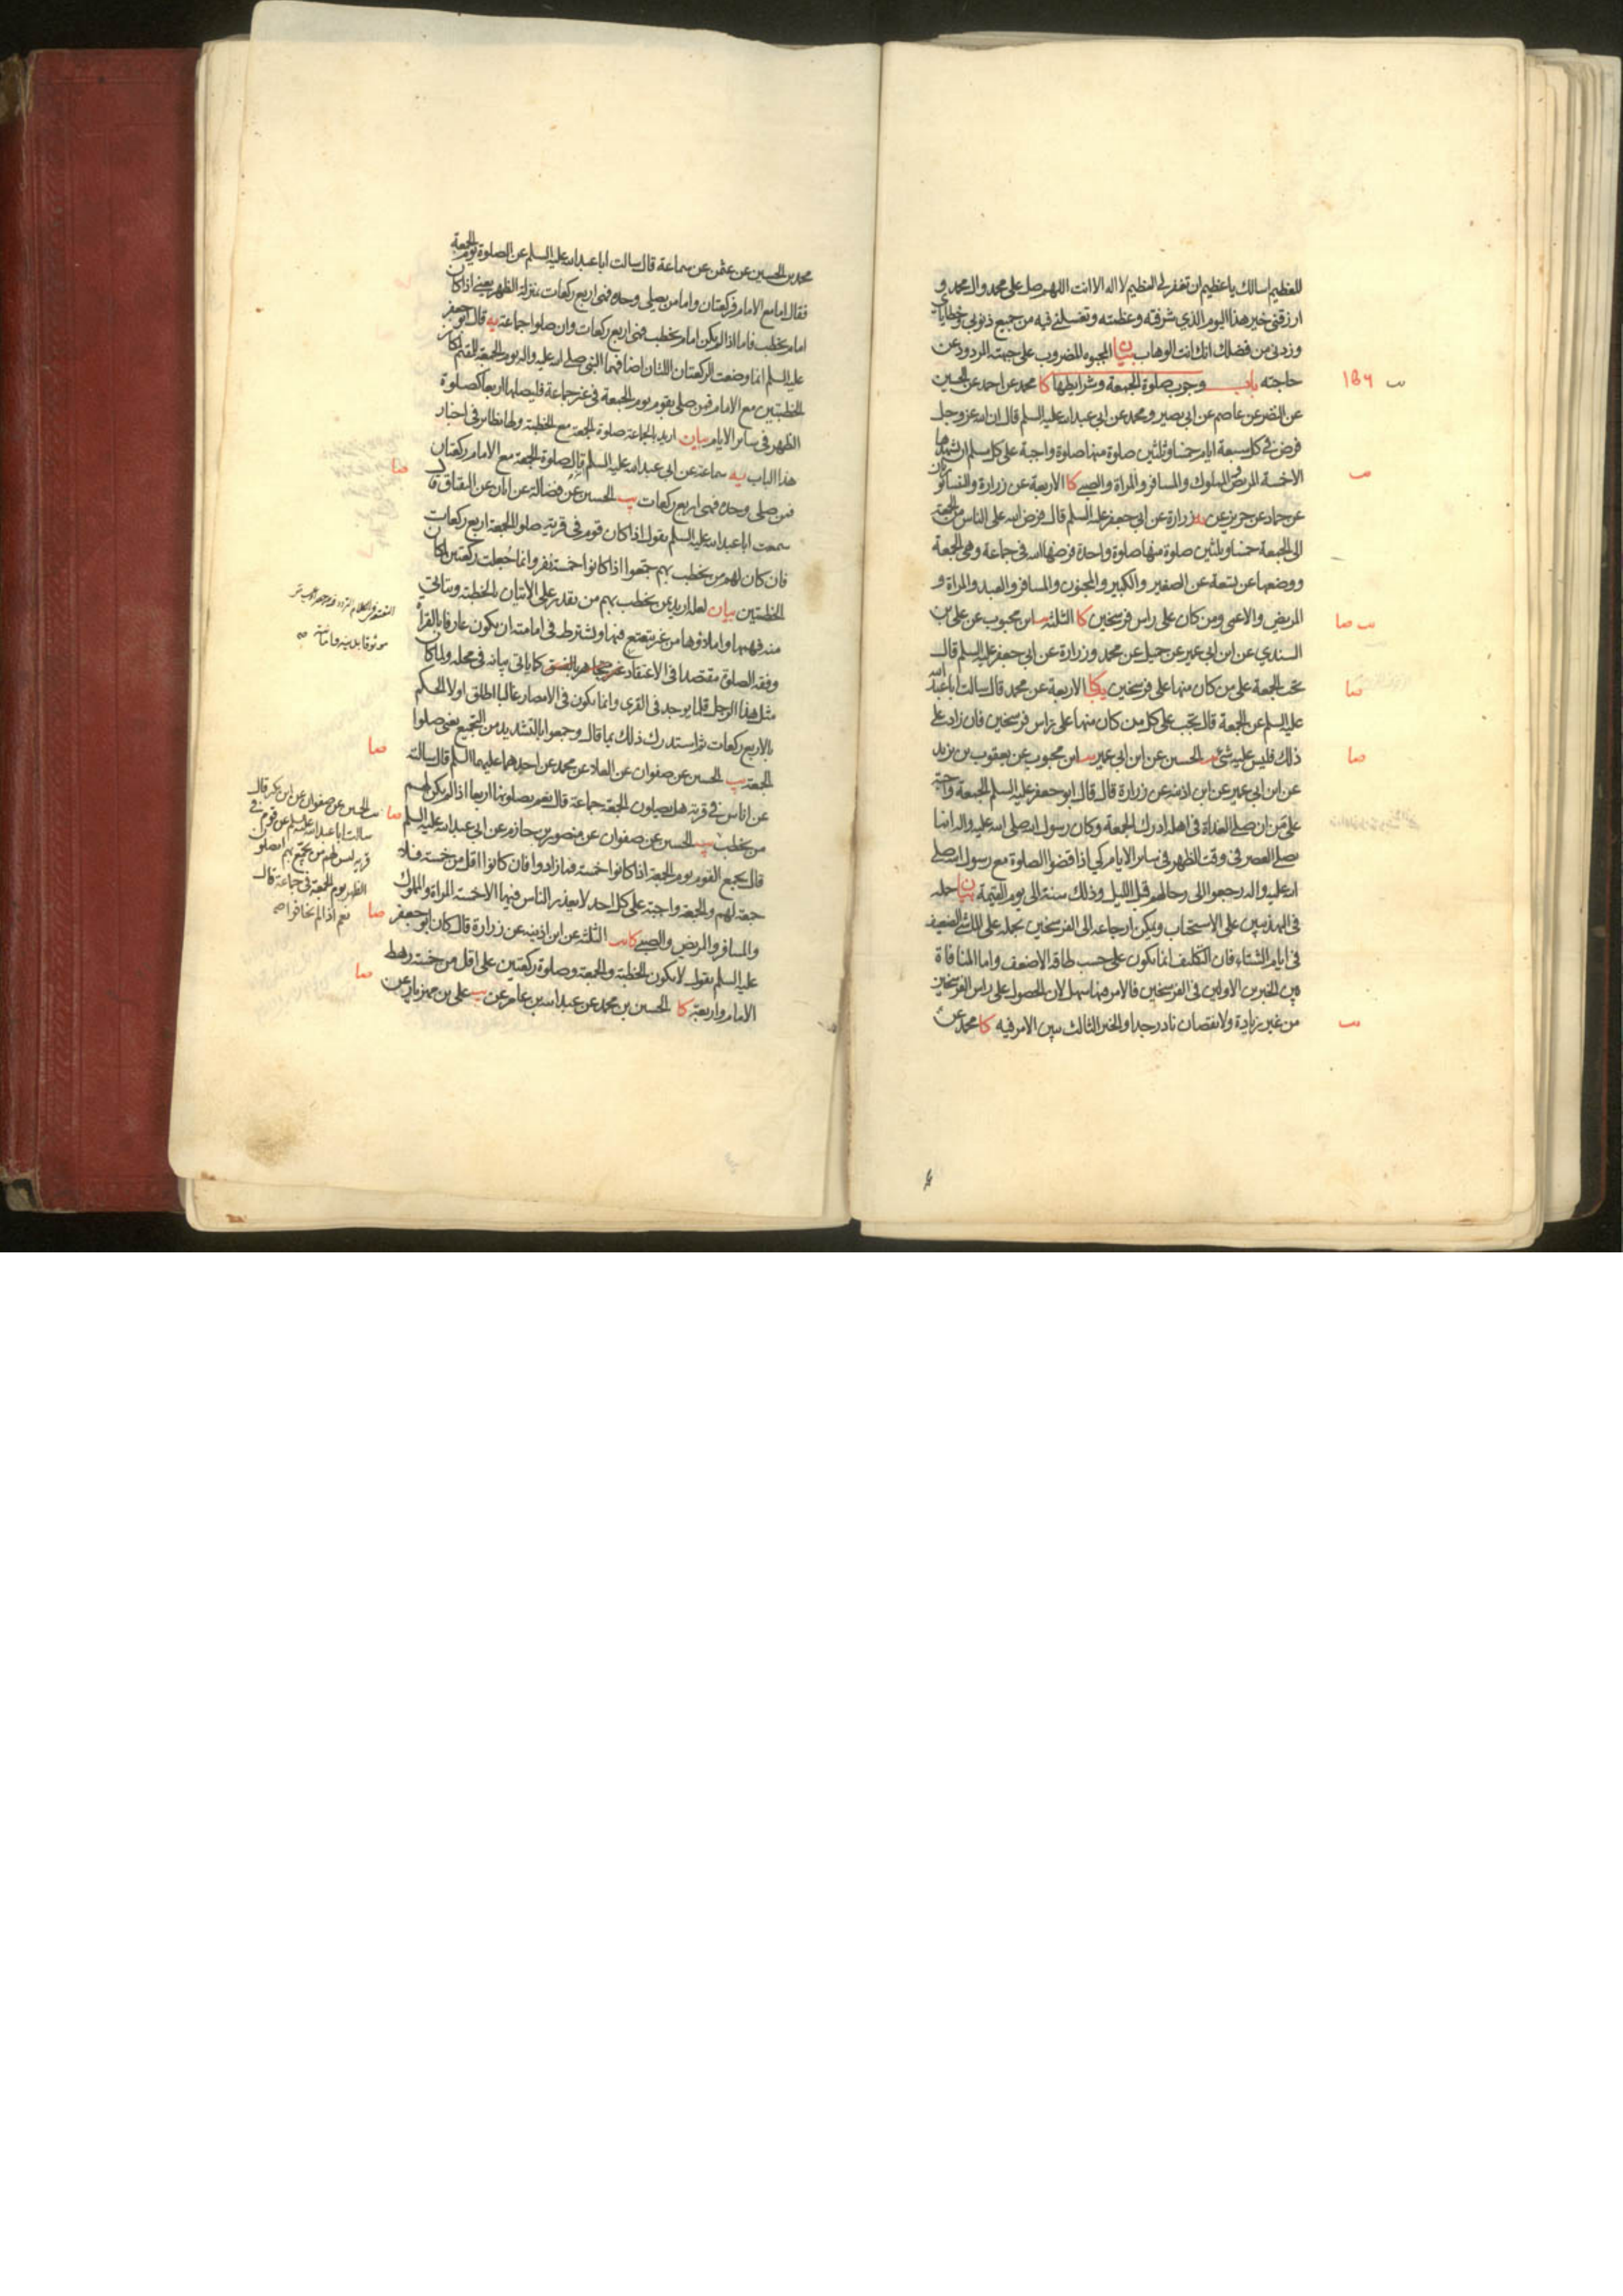 للعظيم اسالك يا عظيم ان تغفر لى العظيم لا اله الا انت اللهم صل على محمد وال محمد و
ارزقنى خير هذا اليوم الذي شرفته وعظمته وتغسلنى فيه من جميع ذنوبى وخطاياى
وزدنى من فضلك انك انت الوهاب بيان المجبوه المضروب على جبهته المردود عن
حاجته باب وجوب صلوة الجمعة وشرايطها كا محمد عن احمد عن الحسين
عن النضر عن عاصم عن ابى بصير ومحمد عن ابى عبدالله عليه السلم قال ان الله عز وجل
فرض فى كل سبعة ايام خمسا وثلثين صلوة منها صلوة واجبة على كل مسلم ان يشهدها
الا خمسة المريض والمملوك والمسافر والمراة والصبى كا الاربعة عن زرارة والنيسابوريان
عن حماد عن حريز عن يه زرارة عن ابى جعفر عليه السلم قال فرض الله على الناس من الجمعة
الى الجمعة خمسا وثلثين صلوة منها صلوة واحدة فرضها الله فى جماعة وهى الجمعة
ووضعها عن تسعة عن الصغير والكبير والمجنون والمسافر والعبد والمراة و
المريض والاعمى ومن كان على راس فرسخين كا الثلثة يب ابن محبوب عن على بن
السندي عن ابن ابى عمير عن جميل عن محمد وزرارة عن ابى جعفر عليه السلم قال
تجب الجمعة على من كان منها على فرسخين يب كا الاربعة عن محمد قال سالت ابا عبد الله
عليه السلم عن الجمعة قال تجب على كل من كان منها على راس فرسخين فان زاد على
ذلك فليس عليه شئ يب الحسين عن ابن ابى عمير يب ابن محبوب عن يعقوب بن يزيد
عن ابن ابى عمير عن ابن اذينه عن زرارة قال قال ابو جعفر عليه السلم الجمعة واجبة
على من ان صلى الغداة فى اهله ادرك الجمعة وكان رسول الله صلى الله عليه واله انما
يصلى العصر فى وقت الظهر فى ساير الايام كي اذا قضوا الصلوة مع رسول الله صلى
الله عليه واله رجعوا الى رحالهم قبل الليل وذلك سنة الى يوم القيمة بيان حمله
فى التهذيبين على الاستحباب ويمكن ارجاعه الى الفرسخين بحمله على الضعيف
فى ايام الشتاء فان التكليف انما يكون على حسب طاقة الاضعف واما المنافاة
بين الخبرين الاولين فى الفرسخين فالامر فيها سهل لان الحصول على راس الفرسخين
من غير زيادة ولا نقصان نادر جدا والخبر الثالث يبين الامر فيه كا محمد عن
محمد بن الحسين عن عثمن عن سماعة قال سالت ابا عبدالله عليه السلم عن الصلوة يوم الجمعة
فقال اما مع الامام فركعتان واما من يصلى وحده فهى اربع ركعات بمنزلة الظهر يعنى اذا كان
امام يخطب فاما اذا لم يكن امام يخطب فهى اربع ركعات وان صلوا جماعة يه قال ابو جعفر
عليه السلم انما وضعت الركعتان اللتان اضافهما النبى صلى الله عليه واله يوم الجمعة للمقيم لمكان
الخطبتين مع الامام فمن صلى يوم الجمعة فى غير جماعة فليصلها اربعا كصلوة
الظهر فى ساير الايام بيان اريد بالجماعة صلوة الجمعة مع الخطبة ولها نظاير فى اخبار
هذا الباب يه سماعة عن ابى عبدالله عليه السلم قال صلوة الجمعة مع الامام ركعتان
فمن صلى وحده فهى اربع ركعات يب الحسين عن فضالة عن ابان عن البقباق قال
سمعت ابا عبدالله عليه السلم يقول اذا كان قوم فى قرية صلوا الجمعة اربع ركعات
فان كان لهم من يخطب بهم جمعوا اذا كانوا خمسة نفر وانما جعلت ركعتين لمكان
الخطبتين بيان لعله اريد بمن يخطب بهم من يقدر على الاتيان بالخطبة ويتاتى
منه فهمها واملاؤها من غير تتعتع فيها ويشترط فى امامته ان يكون عارفا بالقراءة
وفقه الصلوة مقتصدا فى الاعتقاد غير مجاهر بالفسق كما ياتى بيانه فى محله ولما كان
مثل هذا الرجل قلما يوجد فى القرى وانما يكون فى الامصار غالبا اطلق اولا الحكم
بالاربع ركعات ثم استدرك ذلك بما قال وجمعوا بالتشديد من التجميع يعنى صلوا
الجمعة يب الحسين عن صفوان عن العلاء عن محمد عن احدهما عليهما السلم قال سالته
عن اناس فى قرية هل يصلون الجمعة جماعة قال نعم يصلونها اربعا اذا لم يكن لهم
من يخطب يب الحسين عن صفوان عن منصور بن حازم عن ابى عبدالله عليه السلم
قال يجمع القوم يوم الجمعة اذا كانوا خمسة فما زادوا فان كانوا اقل من خمسة فلا
جمعة لهم والجمعة واجبة على كل احد لا يعذر الناس فيها الا خمسة المراة والمملوك
والمسافر والمريض والصبى كا يب الثلثة عن ابن اذينه عن زرارة قال كان ابو جعفر
عليه السلم يقول لا يكون الخطبة والجمعة وصلوة ركعتين على اقل من خمسة رهط
الامام واربعة كا الحسين بن محمد عن عبدالله بن عامر عن يب على بن مهزيار عن
موثوقا بدينه وامانته صح
يب الحسين عن صفوان عن ابن بكير قال
سالت ابا عبدالله عليه السلم عن قوم فى
قرية ليس لهم من يجمع بهم ايصلون
الظهر يوم الجمعة فى جماعة قال
نعم اذا لم يخافوا صح